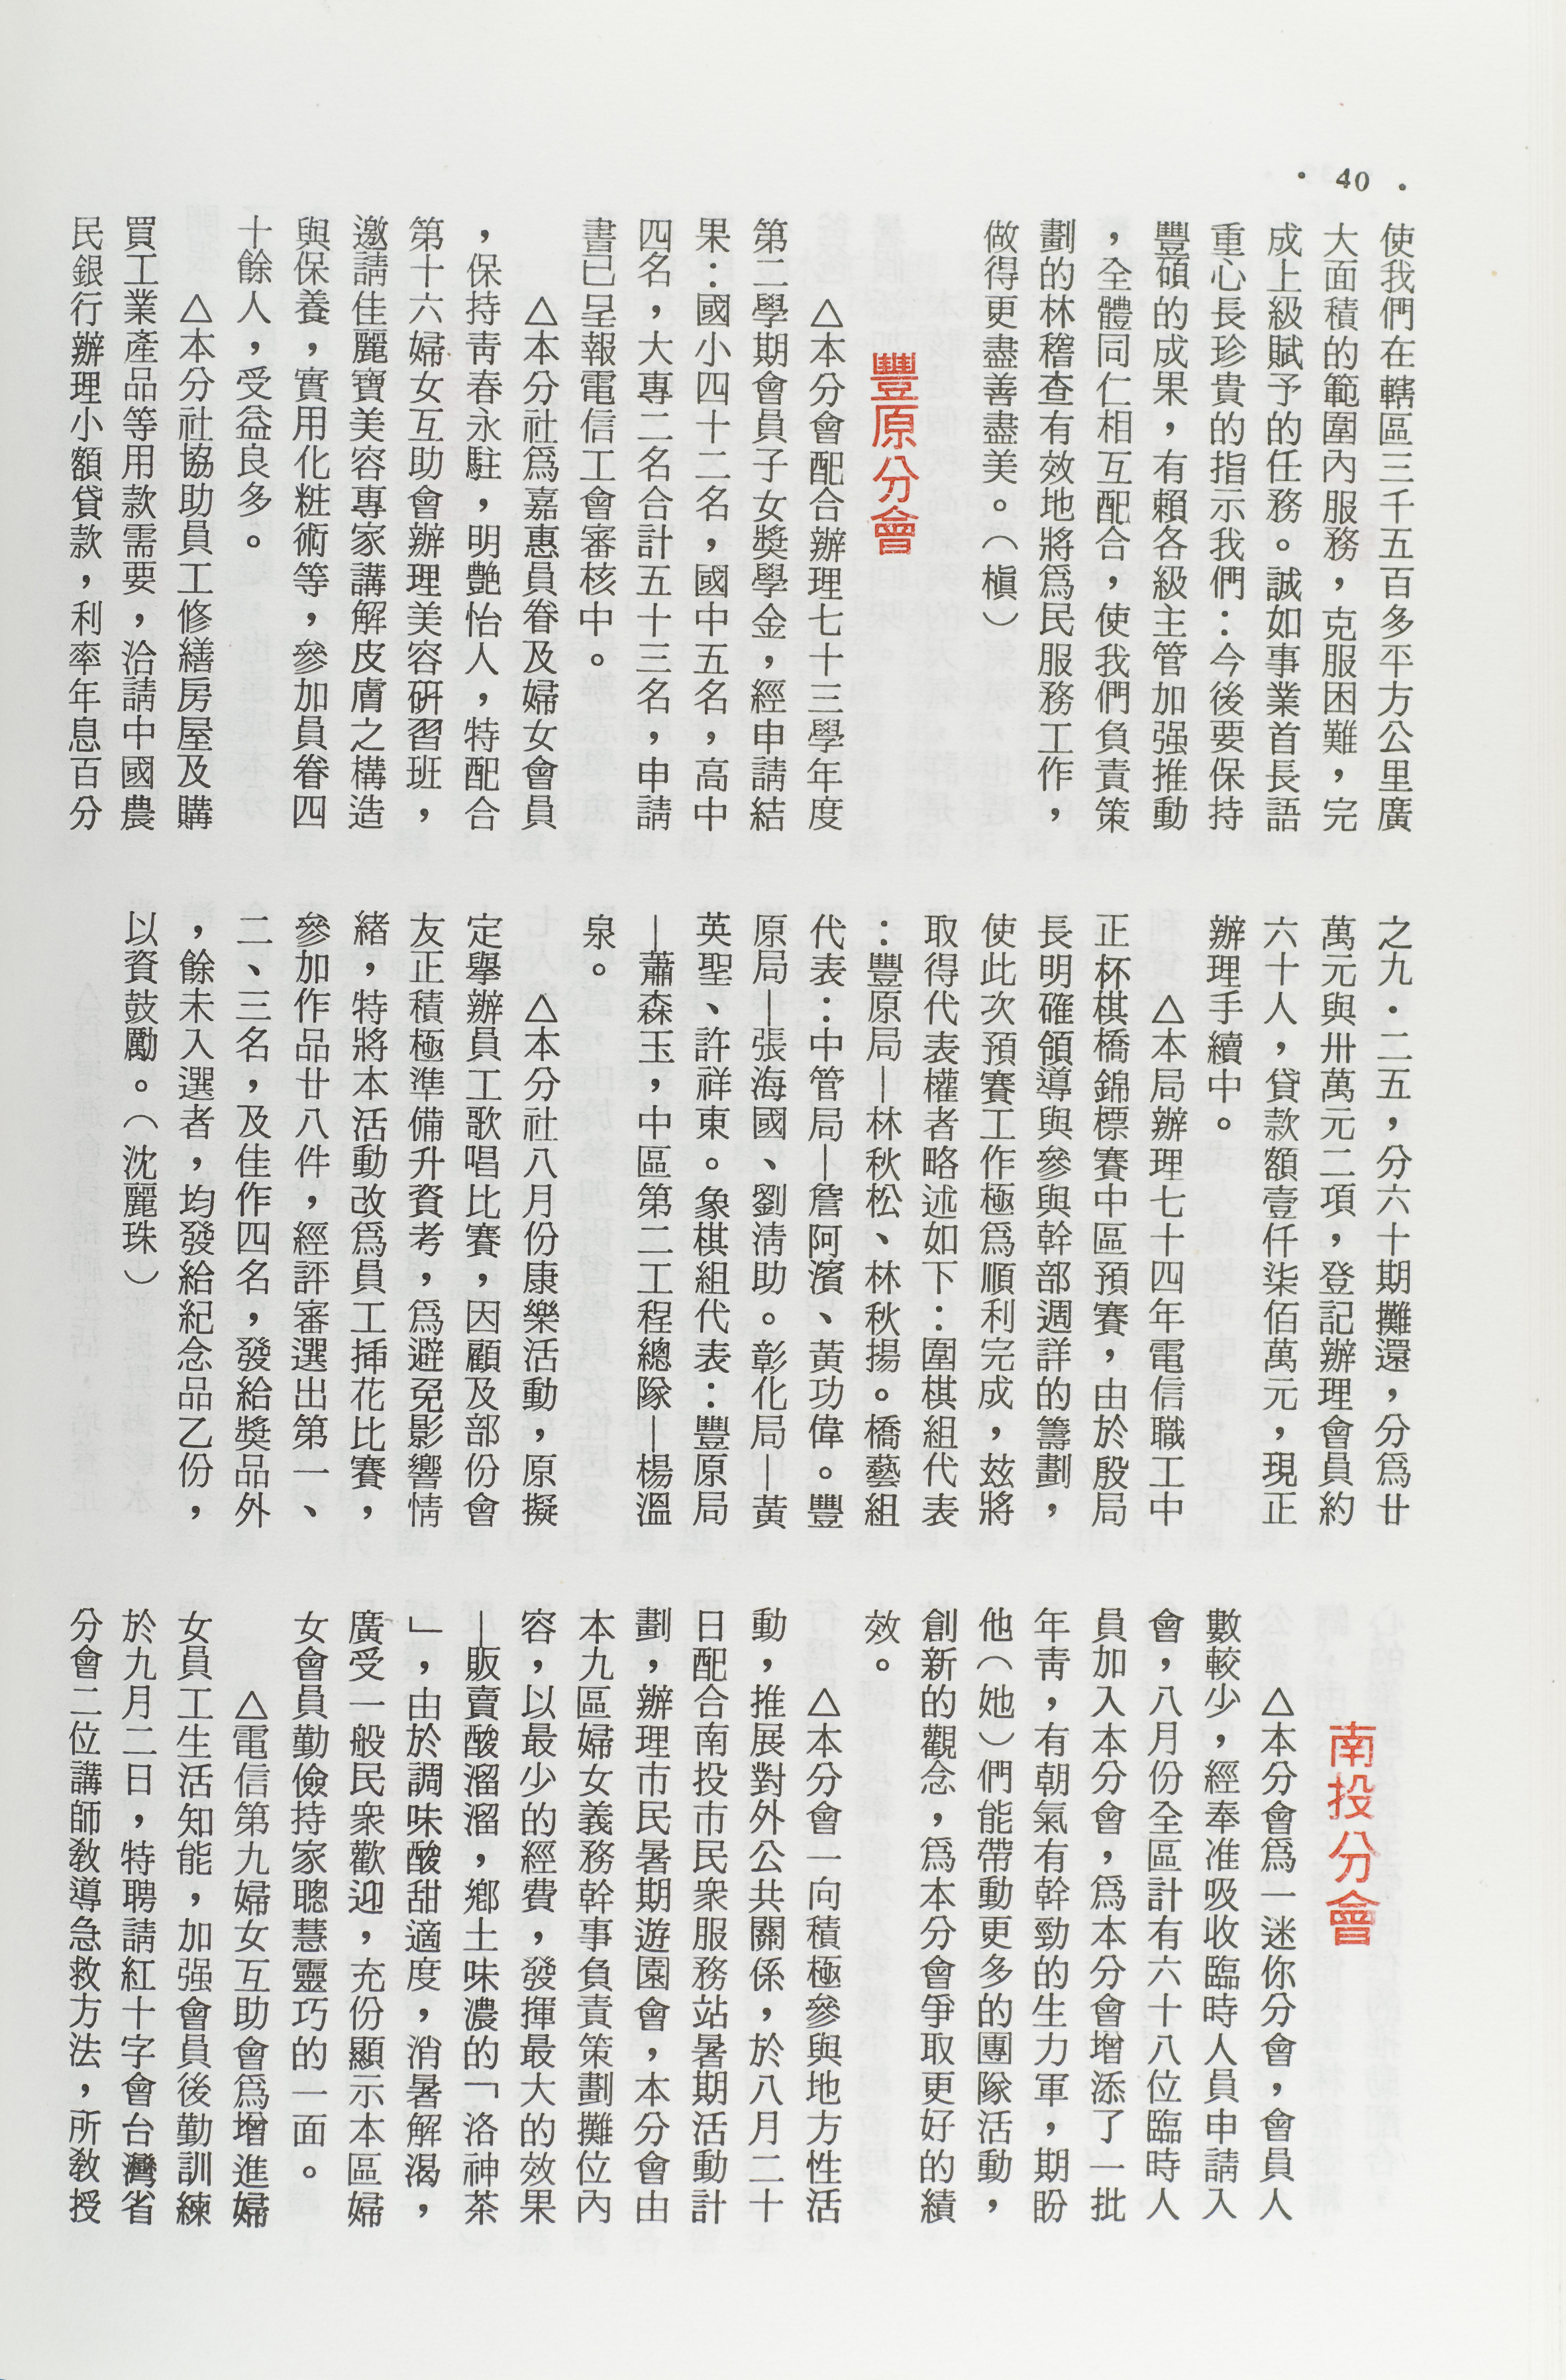 ・40・
使我們在轄區三千五百多平方公里廣
大面積的範圍內服務，克服困難，完
成上級賦予的任務。誠如事業首長語
重心長珍貴的指示我們：今後要保持
豐碩的成果，有賴各級主管加强推動
，全體同仁相互配合，使我們負責策
劃的林稽查有效地將爲民服務工作，
做得更盡善盡美。（槇）
豐原分會
△本分會配合辦理七十三學年度
第二學期會員子女獎學金，經申請結
果：國小四十二名，國中五名，高中
四名，大專二名合計五十三名，申請
書已呈報電信工會審核中。
△本分社爲嘉惠員眷及婦女會員
，保持靑春永駐，明艷怡人，特配合
第十六婦女互助會辦理美容硏習班，
邀請佳麗寶美容專家講解皮膚之構造
與保養，實用化粧術等，參加員眷四
十餘人，受益良多。
△本分社協助員工修繕房屋及購
買工業產品等用款需要，洽請中國農
民銀行辦理小額貸款，利率年息百分
之九・二五，分六十期攤還，分爲廿
萬元與卅萬元二項，登記辦理會員約
六十人，貸款額壹仟柒佰萬元，現正
辦理手續中。
△本局辦理七十四年電信職工中
正杯棋橋錦標賽中區預賽，由於殷局
長明確領導與參與幹部週詳的籌劃，
使此次預賽工作極爲順利完成，玆將
取得代表權者略述如下：圍棋組代表
：豐原局—林秋松、林秋揚。橋藝組
代表：中管局—詹阿濱、黃功偉。豐
原局—張海國、劉淸助。彰化局—黃
英聖、許祥東。象棋組代表：豐原局
—蕭森玉，中區第二工程總隊—楊溫
泉。
△本分社八月份康樂活動，原擬
定擧辦員工歌唱比賽，因顧及部份會
友正積極準備升資考，爲避免影響情
緒，特將本活動改爲員工揷花比賽，
參加作品廿八件，經評審選出第一、
二、三名，及佳作四名，發給獎品外
，餘未入選者，均發給紀念品乙份，
以資鼓勵。（沈麗珠）
南投分會
△本分會爲一迷你分會，會員人
數較少，經奉准吸收臨時人員申請入
會，八月份全區計有六十八位臨時人
員加入本分會，爲本分會增添了一批
年靑，有朝氣有幹勁的生力軍，期盼
他（她）們能帶動更多的團隊活動，
創新的觀念，爲本分會爭取更好的績
效。
△本分會一向積極參與地方性活
動，推展對外公共關係，於八月二十
日配合南投市民衆服務站暑期活動計
劃，辦理市民暑期遊園會，本分會由
本九區婦女義務幹事負責策劃攤位內
容，以最少的經費，發揮最大的效果
—販賣酸溜溜，鄉土味濃的「洛神茶
」，由於調味酸甜適度，消暑解渴，
廣受一般民衆歡迎，充份顯示本區婦
女會員勤儉持家聰慧靈巧的一面。
△電信第九婦女互助會爲增進婦
女員工生活知能，加强會員後勤訓練
於九月二日，特聘請紅十字會台灣省
分會二位講師敎導急救方法，所敎授